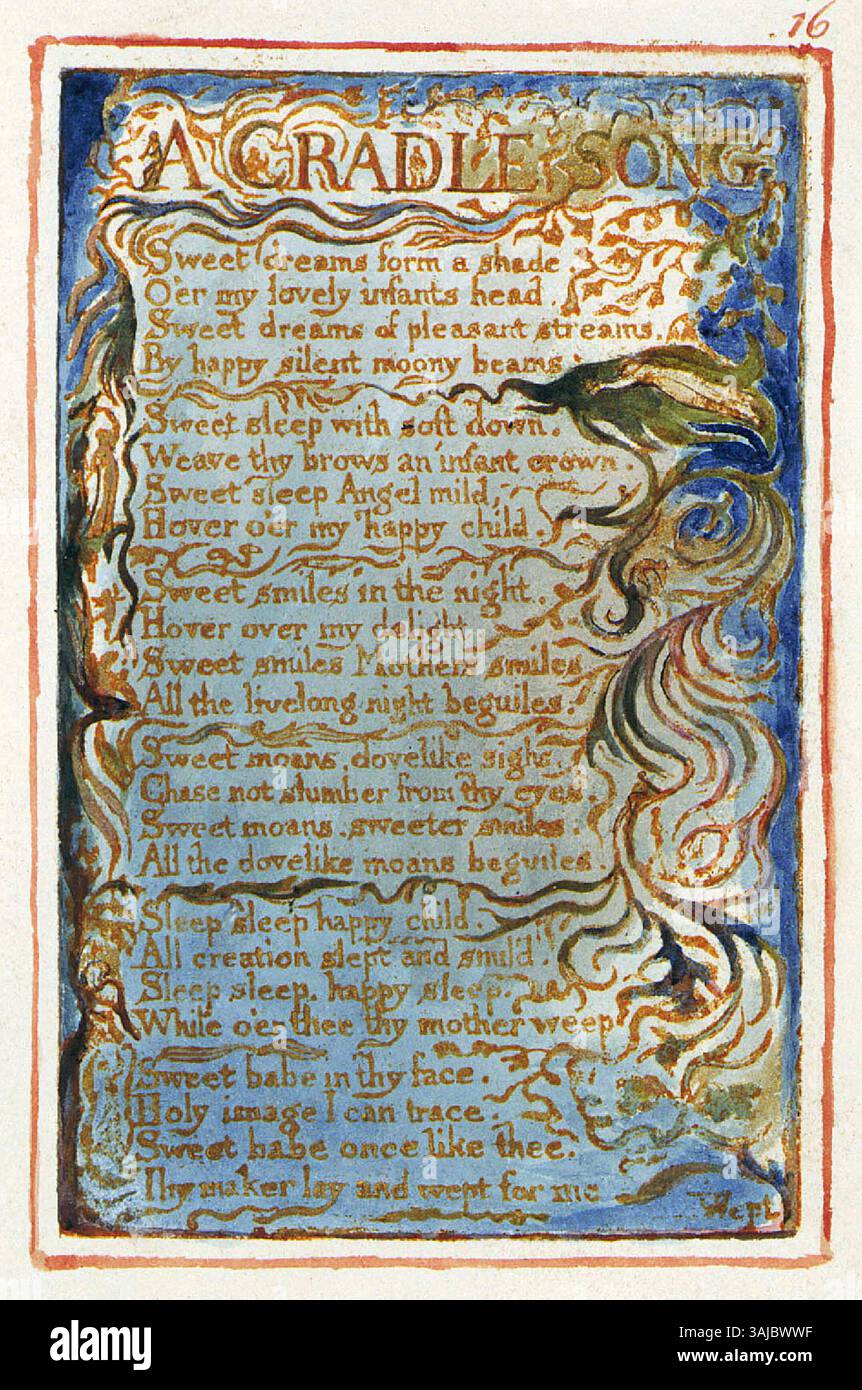 16
A CRADLE SONG
Sweet dreams form a shade.
O'er my lovely infants head.
Sweet dreams of pleasant streams.
By happy silent moony beams.
Sweet sleep with soft down.
Weave thy brows an infant crown.
Sweet sleep Angel mild,
Hover o'er my happy child.
Sweet smiles in the night.
Hover over my delight.
Sweet smiles Mothers smiles
All the livelong night beguiles.
Sweet moans, dovelike sighs.
Chase not slumber from thy eyes.
Sweet moans. sweeter smiles.
All the dovelike moans beguiles.
Sleep sleep happy child.
All creation slept and smil'd.
Sleep sleep. happy sleep.
While o'er thee thy mother weep
Sweet babe in thy face.
Holy image I can trace.
Sweet babe once like thee.
Thy maker lay and wept for me
Wept
alamy
Image ID: 3AJBWWF
www.alamy.com